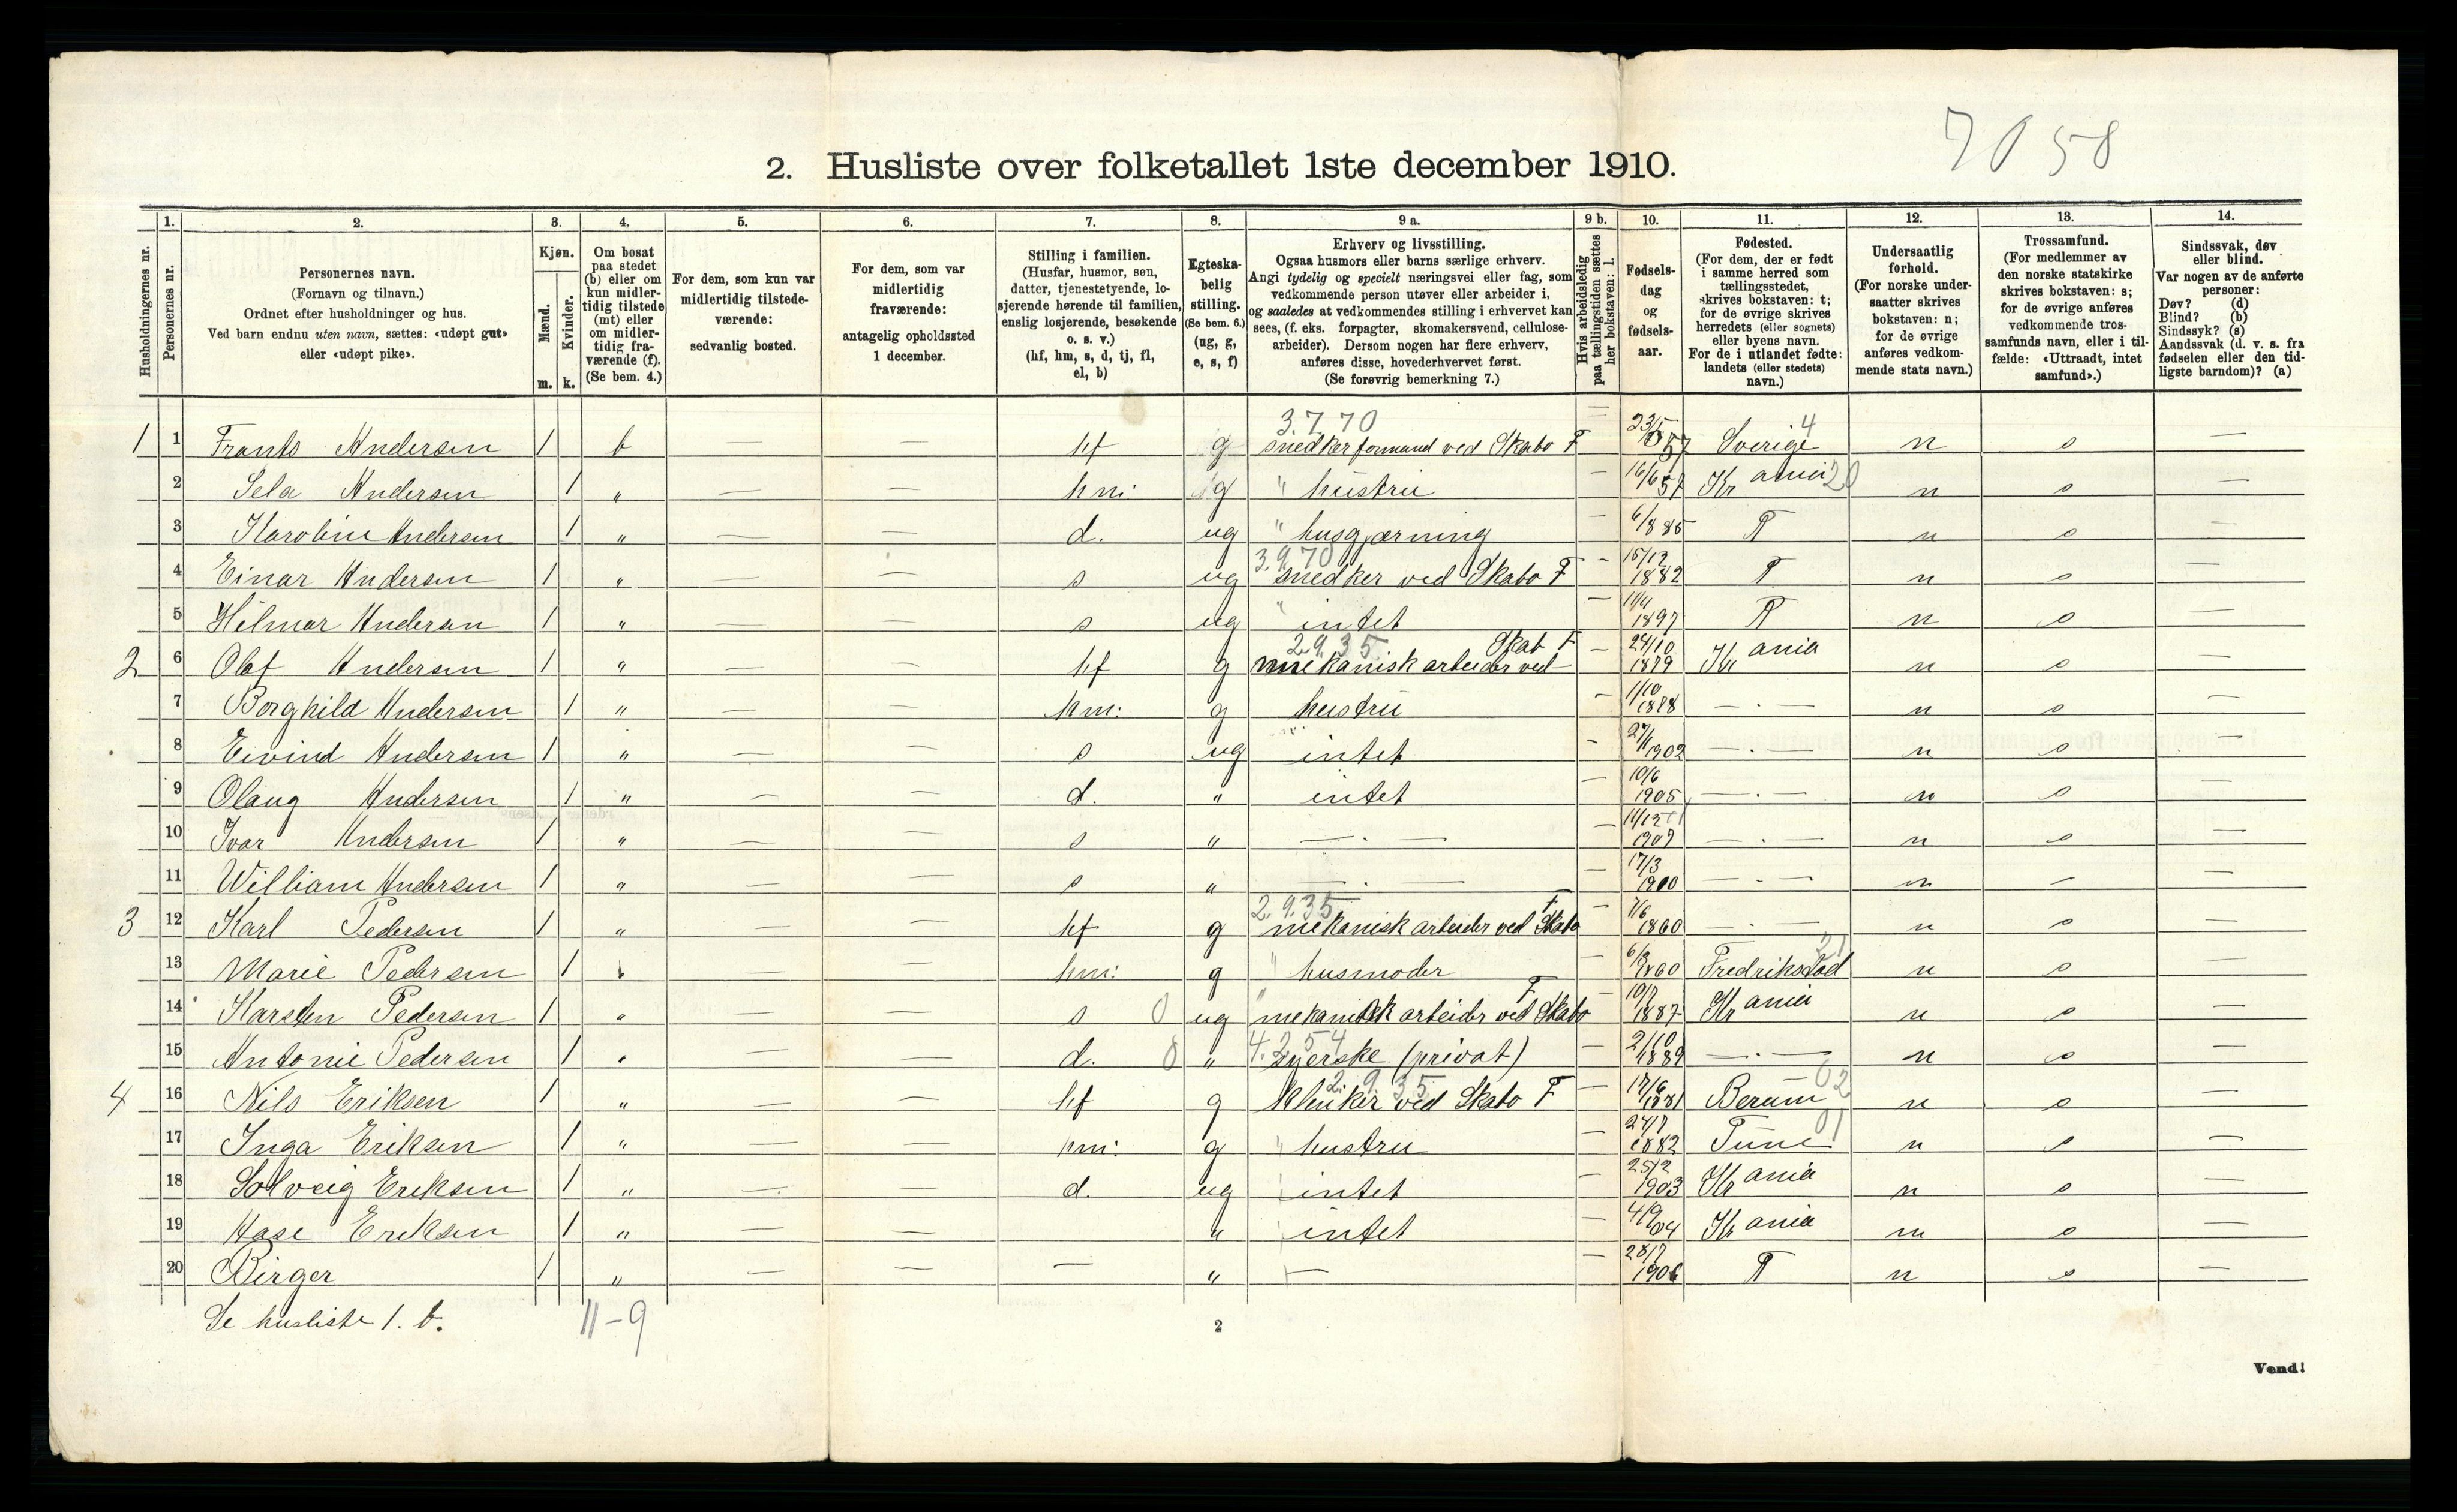 7058
2. Husliste over folketallet 1ste december 1910.
Husholdningernes nr.
1.
Personernes nr.
2.
Personernes navn.
(Fornavn og tilnavn.)
Ordnet efter husholdninger og hus.
Ved barn endnu uten navn, sættes: «udøpt gut»
eller «udøpt pike».
3.
Kjøn.
Mænd.
Kvinder.
m. k.
4.
Om bosat
paa stedet
(b) eller om
kun midler-
tidig tilstede
(mt) eller
om midler-
tidig fra-
værende (f).
(Se bem. 4.)
5.
For dem, som kun var
midlertidig tilstede-
værende:
sedvanlig bosted.
6.
For dem, som var
midlertidig
fraværende:
antagelig opholdssted
1 december.
7.
Stilling i familien.
(Husfar, husmor, søn,
datter, tjenestetyende, lo-
sjerende hørende til familien,
enslig losjerende, besøkende
o. s. v.)
(hf, hm, s, d, tj, fl,
el, b)
8.
Egteska-
belig
stilling.
(Se bem. 6.)
(ug, g,
e, s, f)
9 a.
Erhverv og livsstilling.
Ogsaa husmors eller barns særlige erhverv.
Angi tydelig og specielt næringsvei eller fag, som
vedkommende person utøver eller arbeider i,
og saaledes at vedkommendes stilling i erhvervet kan
sees, (f. eks. forpagter, skomakersvend, cellulose-
arbeider). Dersom nogen har flere erhverv,
anføres disse, hovederhvervet først.
(Se forøvrig bemerkning 7.)
9 b.
Hvis arbeidsledig
paa tællingstiden sættes
her bokstaven: l.
10.
Fødsels-
dag
og
fødsels-
aar.
11.
Fødested.
(For dem, der er født
i samme herred som
tællingsstedet,
skrives bokstaven: t;
for de øvrige skrives
herredets (eller sognets)
eller byens navn.
For de i utlandet fødte:
landets (eller stedets)
navn.)
12.
Undersaatlig
forhold.
(For norske under-
saatter skrives
bokstaven: n;
for de øvrige
anføres vedkom-
mende stats navn.)
13.
Trossamfund.
(For medlemmer av
den norske statskirke
skrives bokstaven: s;
for de øvrige anføres
vedkommende tros-
samfunds navn, eller i til-
fælde: «Uttraadt, intet
samfund».)
14.
Sindssvak, døv
eller blind.
Var nogen av de anførte
personer:
Døv? (d)
Blind? (b)
Sindssyk? (s)
Aandssvak (d. v. s. fra
fødselen eller den tid-
ligste barndom)? (a)
3.7.70
1 1 Frants Andersen 1 b — — hf g snedker formand ved Skabo F — 23/5 57 Sverige 4 n s —
2 Sela Andersen 1 " — — hm: g " hustru — 16/6 57 Kr ania 20 n s —
3 Karoline Andersen 1 " — — d. ug " husgjærning — 6/1 885 T n s —
3.9.70
4 Einar Andersen 1 " — — s ug " snedker ved Skabo F — 15/12 1882 T n s —
5 Hilmar Andersen 1 " — — s ug " intet — 11/4 1897 T n s —
2.9.35. Skab F
2 6 Olaf Andersen 1 " — — hf g mekanisk arbeider ved — 24/10 1879 Kr ania n s —
7 Borghild Andersen 1 " — — hm: g hustru — 1/10 1888 — . — n s —
8 Eivind Andersen 1 " — — s ug intet — 27/11 1902 — . — n s —
9 Olaug Andersen 1 " — — d. " intet — 10/6 1905 — . — n s —
10 Ivar Andersen 1 " — — s " — . — — 11/12 1907 — . — n s —
11 William Andersen 1 " — — s " — . — — 17/3 1910 — . — n — —
2.9.35 F
3 12 Karl Pedersen 1 " — — hf g mekanisk arbeider ved Skabo — 7/6 1860 — . — n s —
13 Marie Pedersen 1 " — — hm: g " husmoder — 6/3 1860 Fredriksstad 21 n s —
14 Karsten Pedersen 1 " — — s 0 ug mekanisk arbeider ved Skabo F — 10/7 1887 Kr ania n s —
4.2.54
15 Antonie Pedersen 1 " — — d. 0 " syerske (privat) — 2/10 1889 — . — n s —
2.9.35
4 16 Nils Eriksen 1 " — — hf g klinker ved Skabo F — 17/6 1881 Berum 62 n s —
17 Inga Eriksen 1 " — — hm: g " hustru — 24/7 1882 Tune 01 n s —
18 Solveig Eriksen 1 " — — d. ug intet — 25/2 1903 Kr ania n s —
19 Aase Eriksen 1 " — — " intet — 4/9 04 Kr ania n s —
20 Birger 1 " — — — " — — 28/7 1906 T n s —
Se husliste 1. b. 11–9
2
Vend!